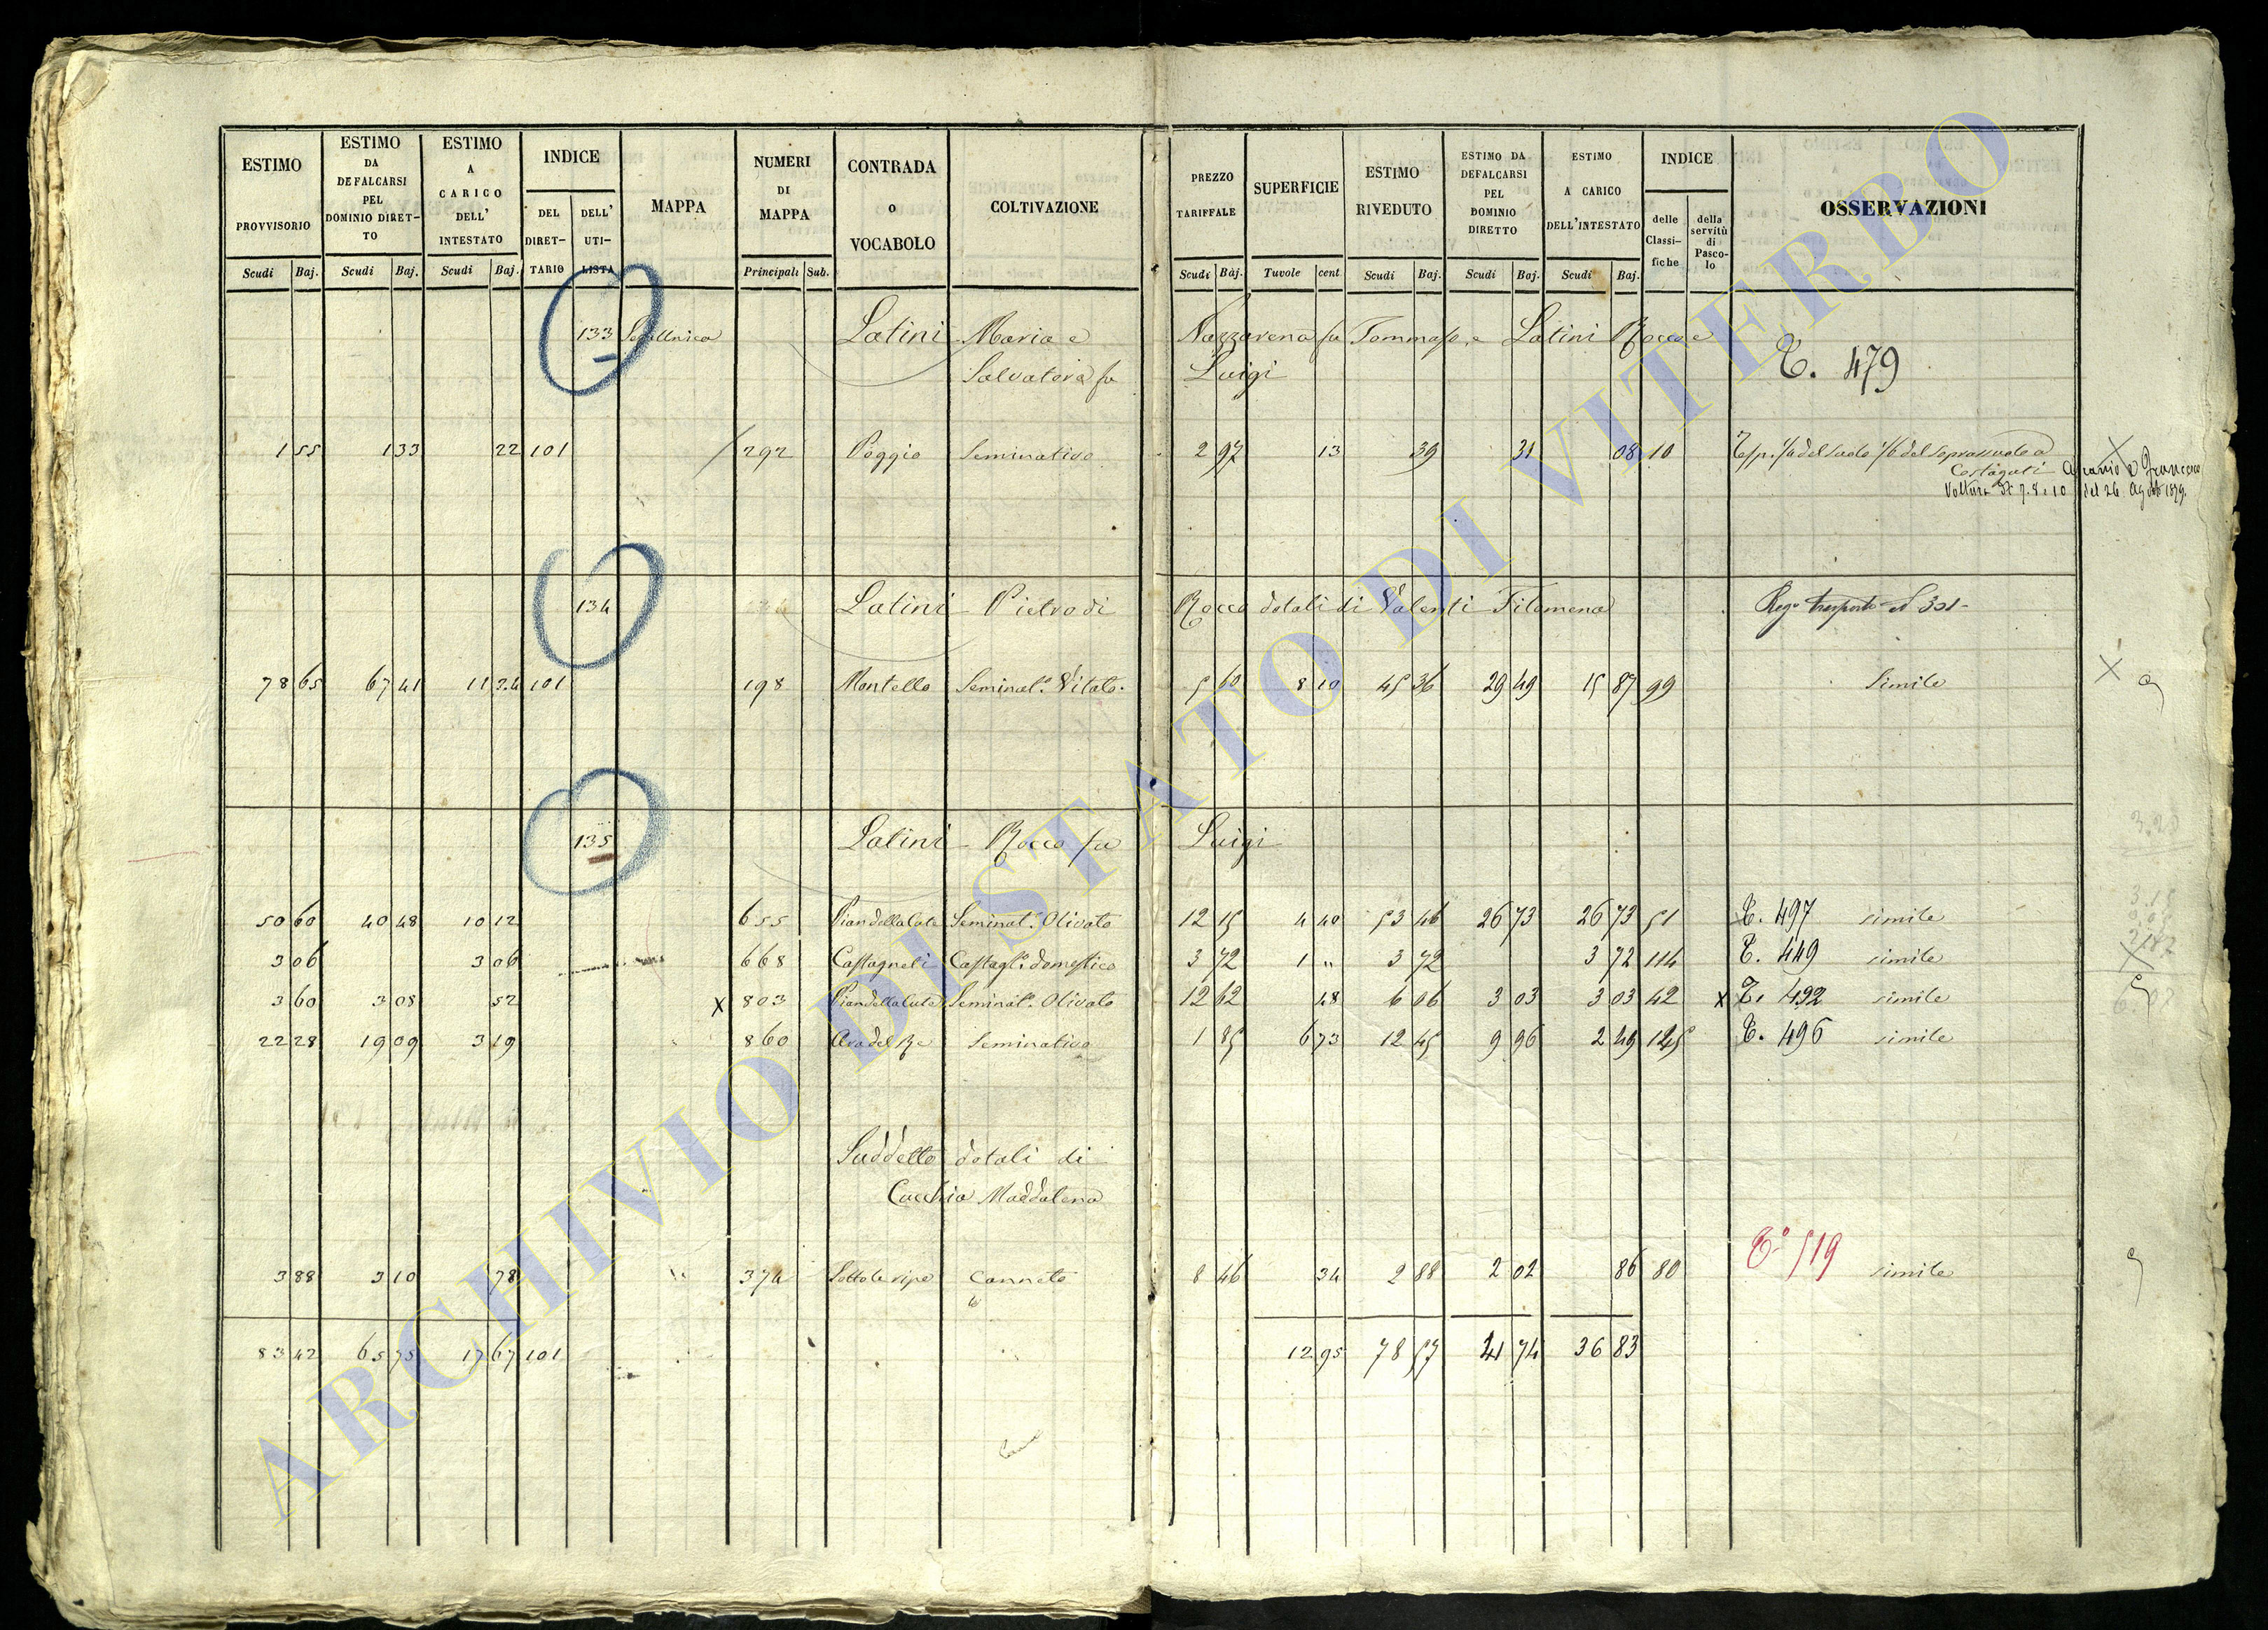 ESTIMO PROVVISORIO Scudi Baj.
ESTIMO DA DEFALCARSI PEL DOMINIO DIRET-TO Scudi Baj.
ESTIMO A CARICO DELL' INTESTATO Scudi Baj.
INDICE DEL DIRET-TARIO DELL' UTI-LISTA
MAPPA
NUMERI DI MAPPA Principali Sub.
CONTRADA o VOCABOLO
COLTIVAZIONE
PREZZO TARIFFALE Scudi Baj.
SUPERFICIE Tavole cent
ESTIMO RIVEDUTO Scudi Baj.
ESTIMO DA DEFALCARSI PEL DOMINIO DIRETTO Scudi Baj.
ESTIMO A CARICO DELL'INTESTATO Scudi Baj.
INDICE delle Classi-fiche della servitù di Pasco-lo
OSSERVAZIONI
133 Latini Maria e Nazzarena fu Tommaso, e Latini Rocco e
Salvatora fu Luigi T. 479
1 55 1 33 22 101 292 Poggio Seminativo 2 97 13 39 31 08 10
Costaguti
Voltura 26 Agosto 1879.
134 Latini Pietro di Rocco dotali di Valenti Filomena Reg.o trasporto N 301
78 65 67 41 11 24 101 198 Montello Seminat.o Vitato 5 60 8 10 45 36 29 49 15 87 99 Simile
135 Latini Rocco fu Luigi
50 60 40 48 10 12 655 Piandellalute Seminat.o Olivato 12 15 4 40 53 46 26 73 26 73 51 T. 497 simile
3 06 3 06 668 Castagneli Castagt.o domestico 3 72 1 " 3 72 3 72 114 T. 449 simile
3 60 3 08 52 x 803 Piandellalute Seminat.o Olivato 12 62 48 6 06 3 03 3 03 42 x T. 492 simile
22 28 19 09 3 19 860 Ara del Re Seminativo 1 85 6 73 12 45 9 96 2 49 125 T. 496 simile
Suddetto dotali di
Cucchia Maddalena
3 88 3 10 78 374 Sottoleripe Canneto 8 46 34 2 88 2 02 86 80 T.o 519 simile
83 42 65 75 17 67 101 12 95 78 57 41 74 36 83
ARCHIVIO DI STATO DI VITERBO